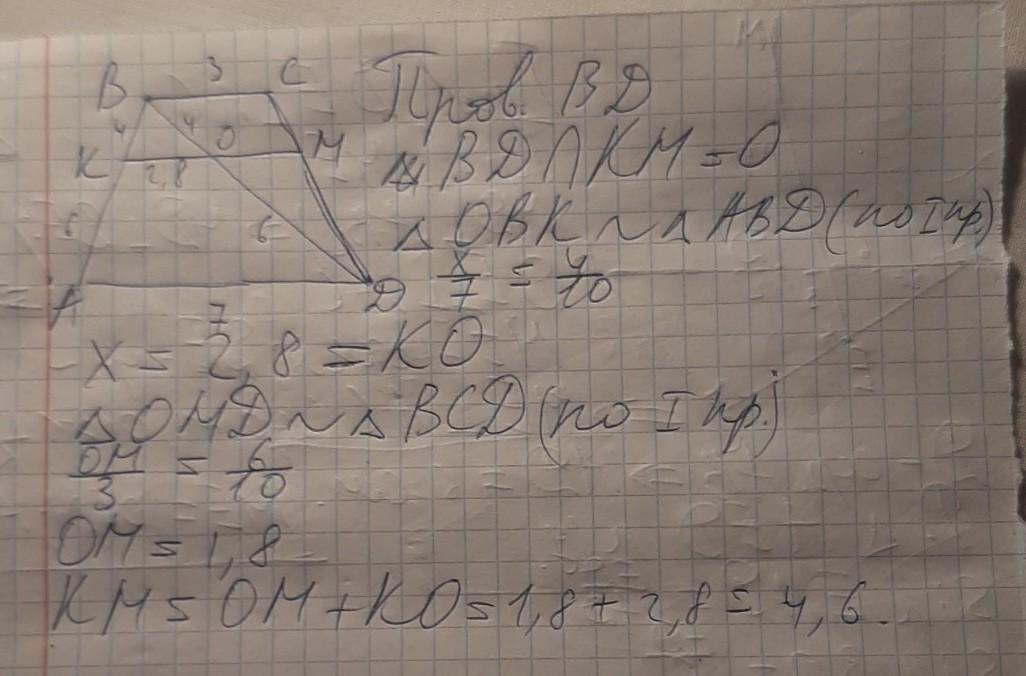 B 3 C
4 4 O
K 2,8 M
6 6
A 7 D
Пров. BD
BD∩KM=O
△OBK~△ABD(по I пр.)
x/7 = 4/10
x = 2,8 = KO
△OMD~△BCD(по I пр.)
OM/3 = 6/10
OM = 1,8
KM = OM+KO=1,8+2,8=4,6.